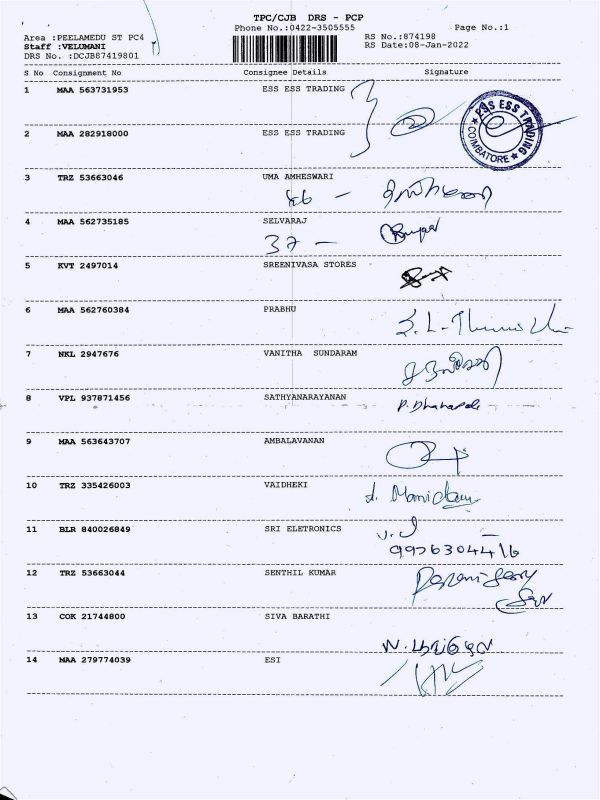 TPC/CJB DRS - PCP
Phone No.:0422-3505555 Page No.:1
Area :PEELAMEDU ST PC4 RS No.:874198
Staff :VELUMANI RS Date:08-Jan-2022
DRS No. :DCJB87419801
S No Consignment No Consignee Details Signature
1 MAA 563731953 ESS ESS TRADING
ESS ESS TRADING
COIMBATORE
2 MAA 282918000 ESS ESS TRADING
3 TRZ 53663046 UMA AMHESWARI
4 MAA 562735185 SELVARAJ
37 -
5 KVT 2497014 SREENIVASA STORES
6 MAA 562760384 PRABHU
7 NKL 2947676 VANITHA SUNDARAM
8 VPL 937871456 SATHYANARAYANAN
9 MAA 563643707 AMBALAVANAN
10 TRZ 335426003 VAIDHEKI
11 BLR 840026849 SRI ELETRONICS
12 TRZ 53663044 SENTHIL KUMAR
13 COK 21744800 SIVA BARATHI
14 MAA 279774039 ESI